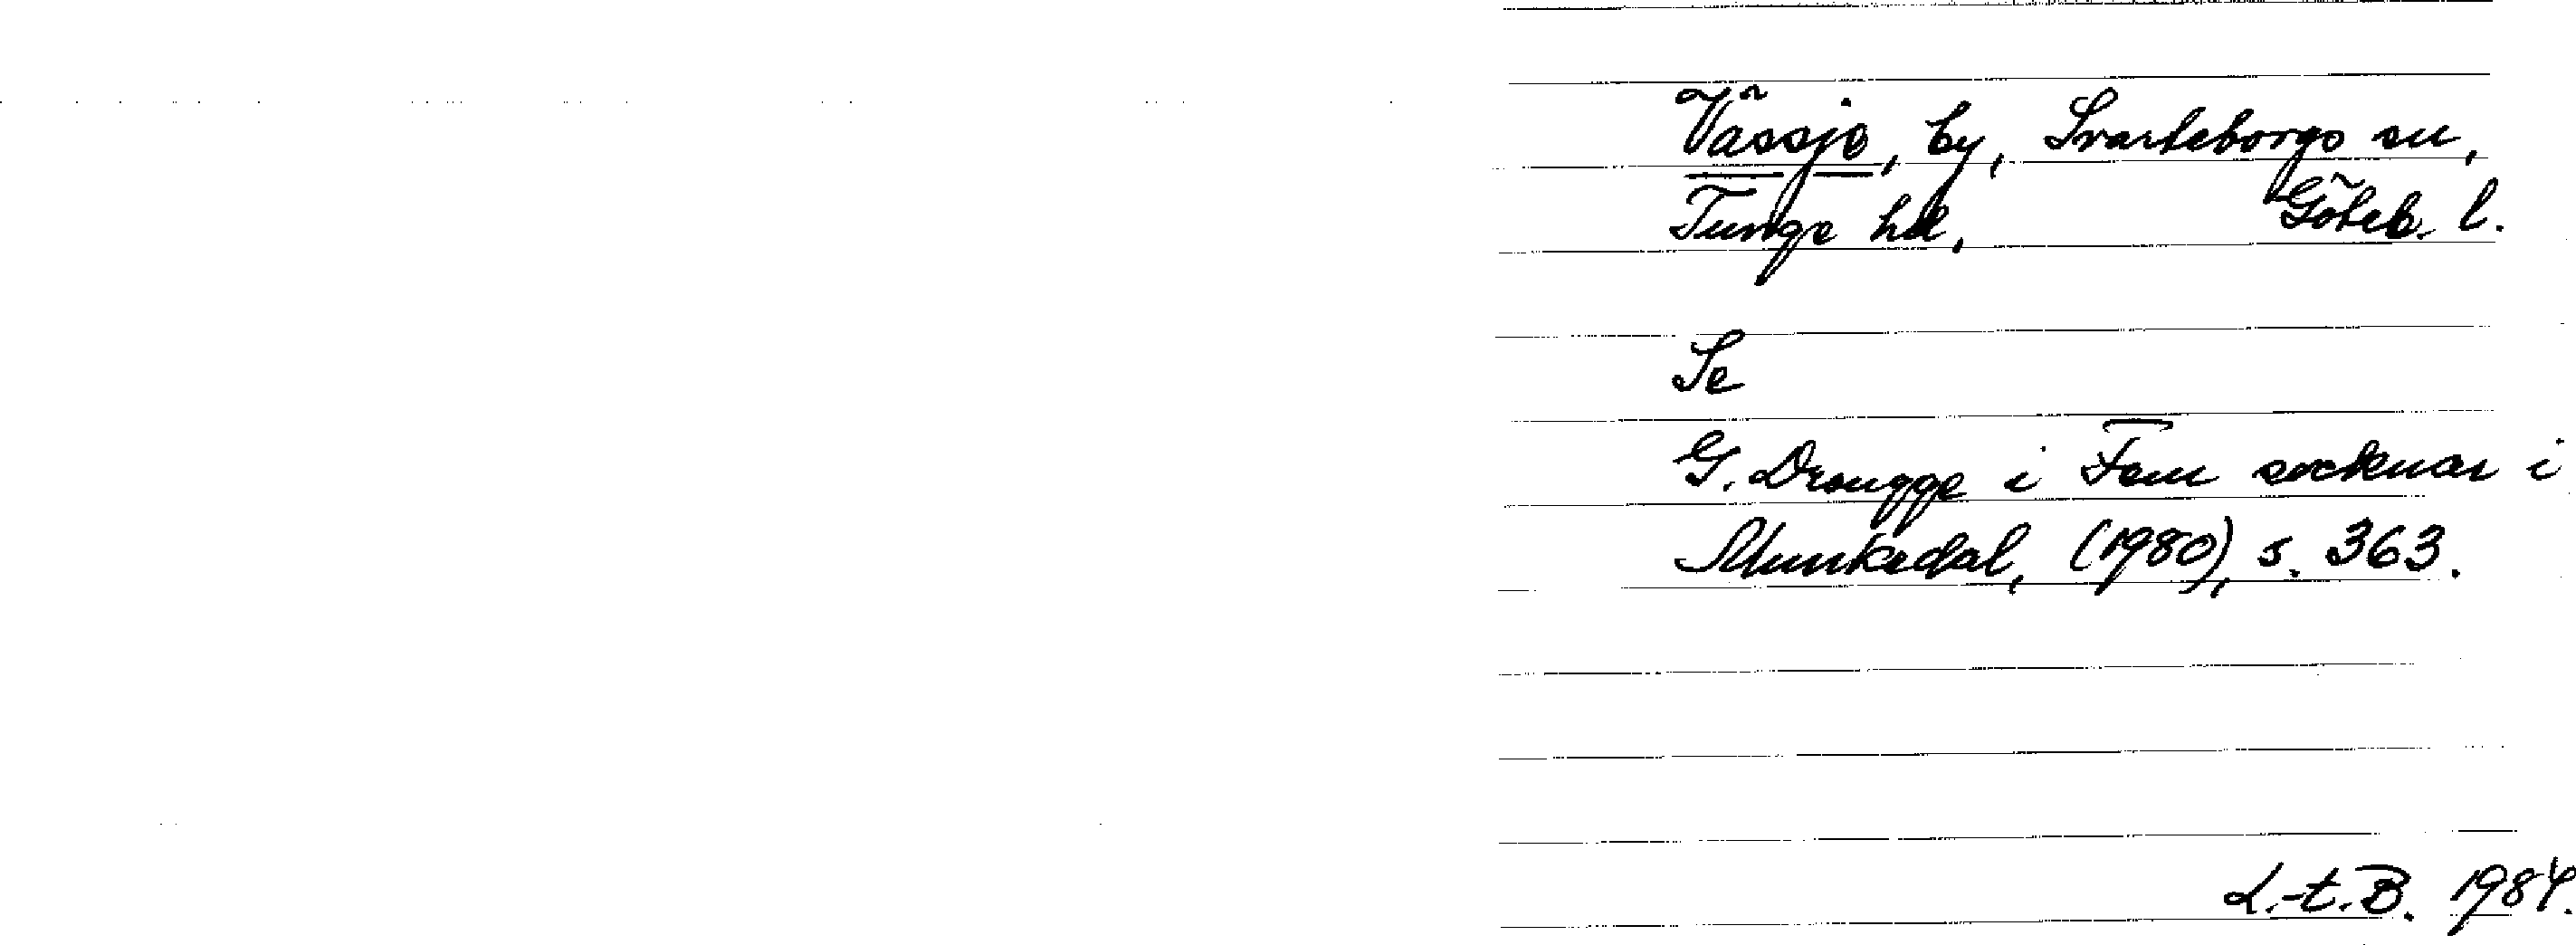 Vässje, by, Svarteborgs sn,
Tunge hd, Göteb. l.
Se
G. Drougge i Fem socknar i
Munkedal, (1980), s. 363.
L.-t. B. 1984.